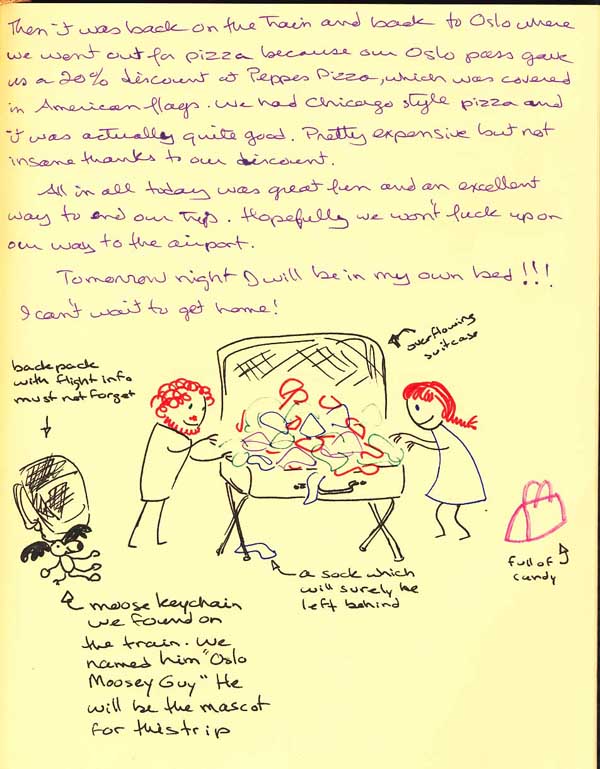 Then it was back on the train and back to Oslo where
we went out for pizza because our Oslo pass gave
us a 20% discount at Peppes Pizza, which was covered
in American flags. We had Chicargo style pizza and
it was actually quite good. Pretty expensive but not
insane thanks to our discount.
All in all today was great fun and an excellent
way to end our trip. Hopefully we won't fuck up on
our way to the airport.
Tomorrow night I will be in my own bed!!!
I can't wait to get home!
overflowing
suitcase
backpack
with flight info
must not forget
full of
candy
a sock which
will surely be
left behind
moose keychain
we found on
the train. We
named him "Oslo
Moosey Guy" He
will be the mascot
for this trip